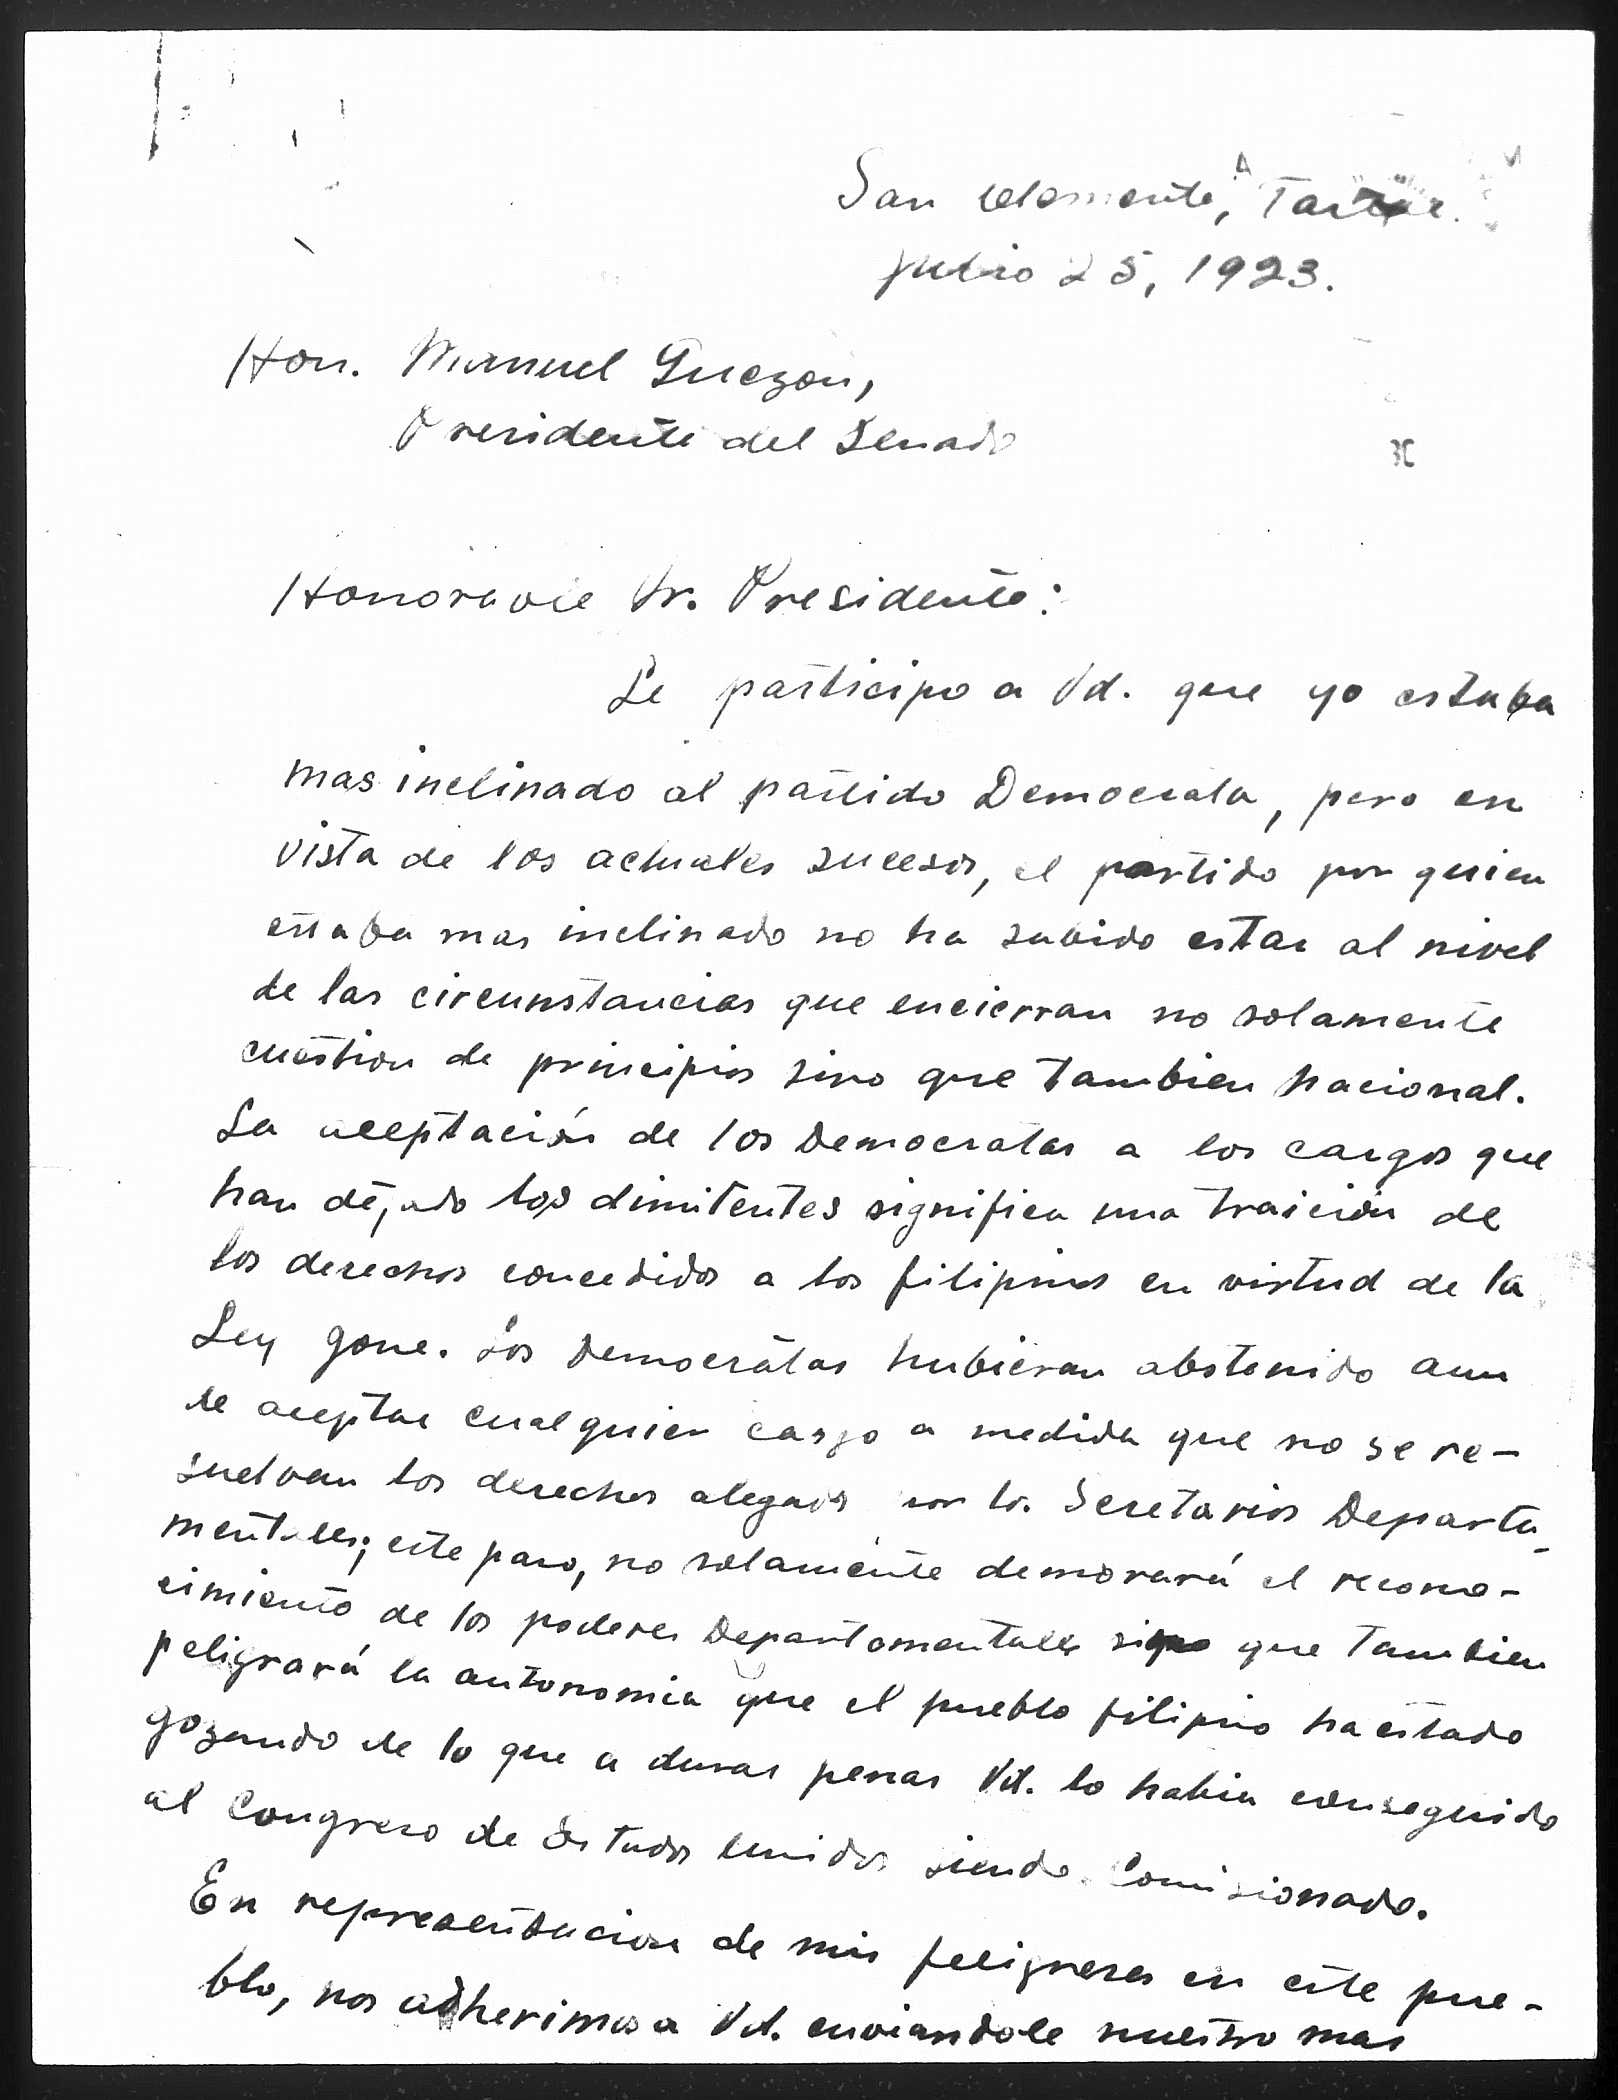 San Clemente, Tarlac.
Julio 25, 1923.
Hon. Manuel Quezon,
Presidente del Senado
Honorable Sr. Presidente:
Le participo a Vd. que yo estaba
mas inclinado al partido Democrata, pero en
vista de los actuales sucesos, el partido por quien
estaba mas inclinado no ha sabido estar al nivel
de las circunstancias que encierran no solamente
cuestion de principios sino que tambien nacional.
La aceptación de los Democratas a los cargos que
han dejado los dimitentes significa una traición de
los derechos concedidos a los filipinos en virtud de la
Ley Jone. Los Democratas hubieran abstenido aun
de aceptar cualquier cargo a medida que no se re-
suelvan los derechos alegados por los Secretarios Departa-
mentales; este paso, no solamente demorará el recono-
cimiento de los poderes Departamentales sino que tambien
peligrará la autonomia que el pueblo filipino ha estado
gozando de lo que a duras penas Vd. lo habia conseguido
al Congreso de Estados Unidos siendo Comisionado.
En representacion de mis feligreses en este pue-
blo, nos adherimos a Vd. enviandole nuestro mas